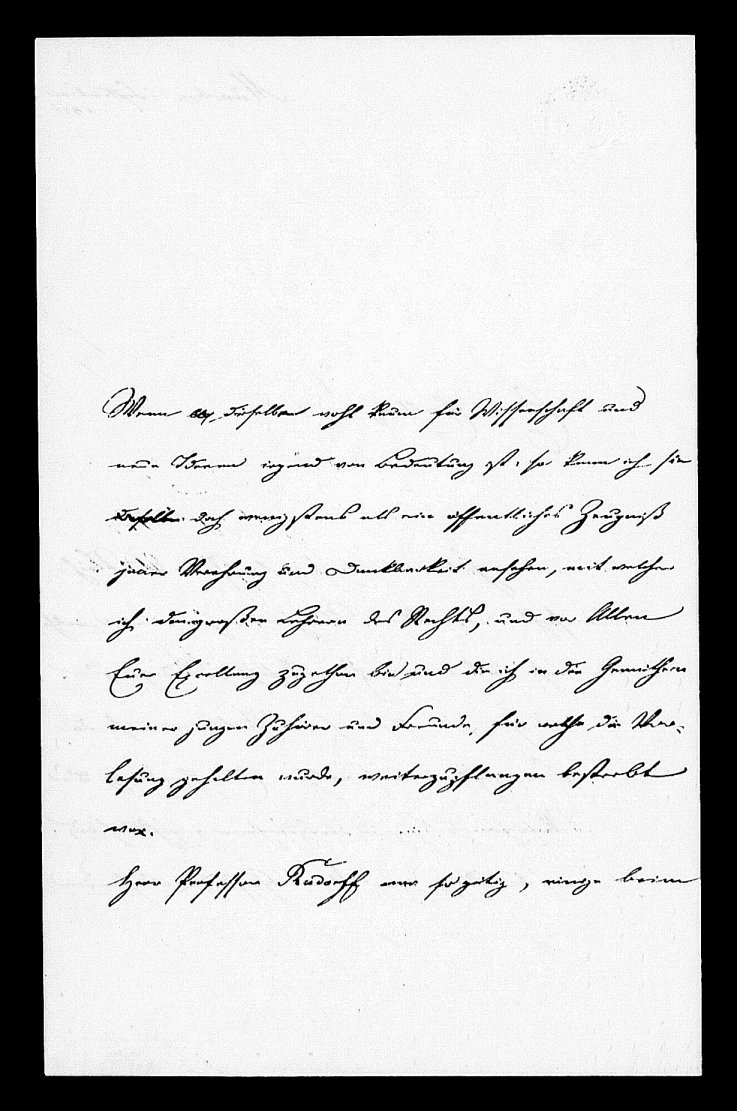 Wenn dieselben wohl kaum für Wissenschaft und
neue Ideen irgend von Bedeutung ist: so kann ich sie
doch wenigstens als ein öffentliches Zeugniß
jener Verehrung und Dankbarkeit ansehen, mit welcher
ich den großen Lehrern des Rechts, und vor Allen
Euer Excellenz zugethan bin und die ich in den Gemüthern
meiner jungen Zuhörer und Freunde, für welche die Vor-
lesung gehalten wurde, weiterzupflanzen bestrebt
war.
Herr Professor Rudorff war so gütig, einige beim